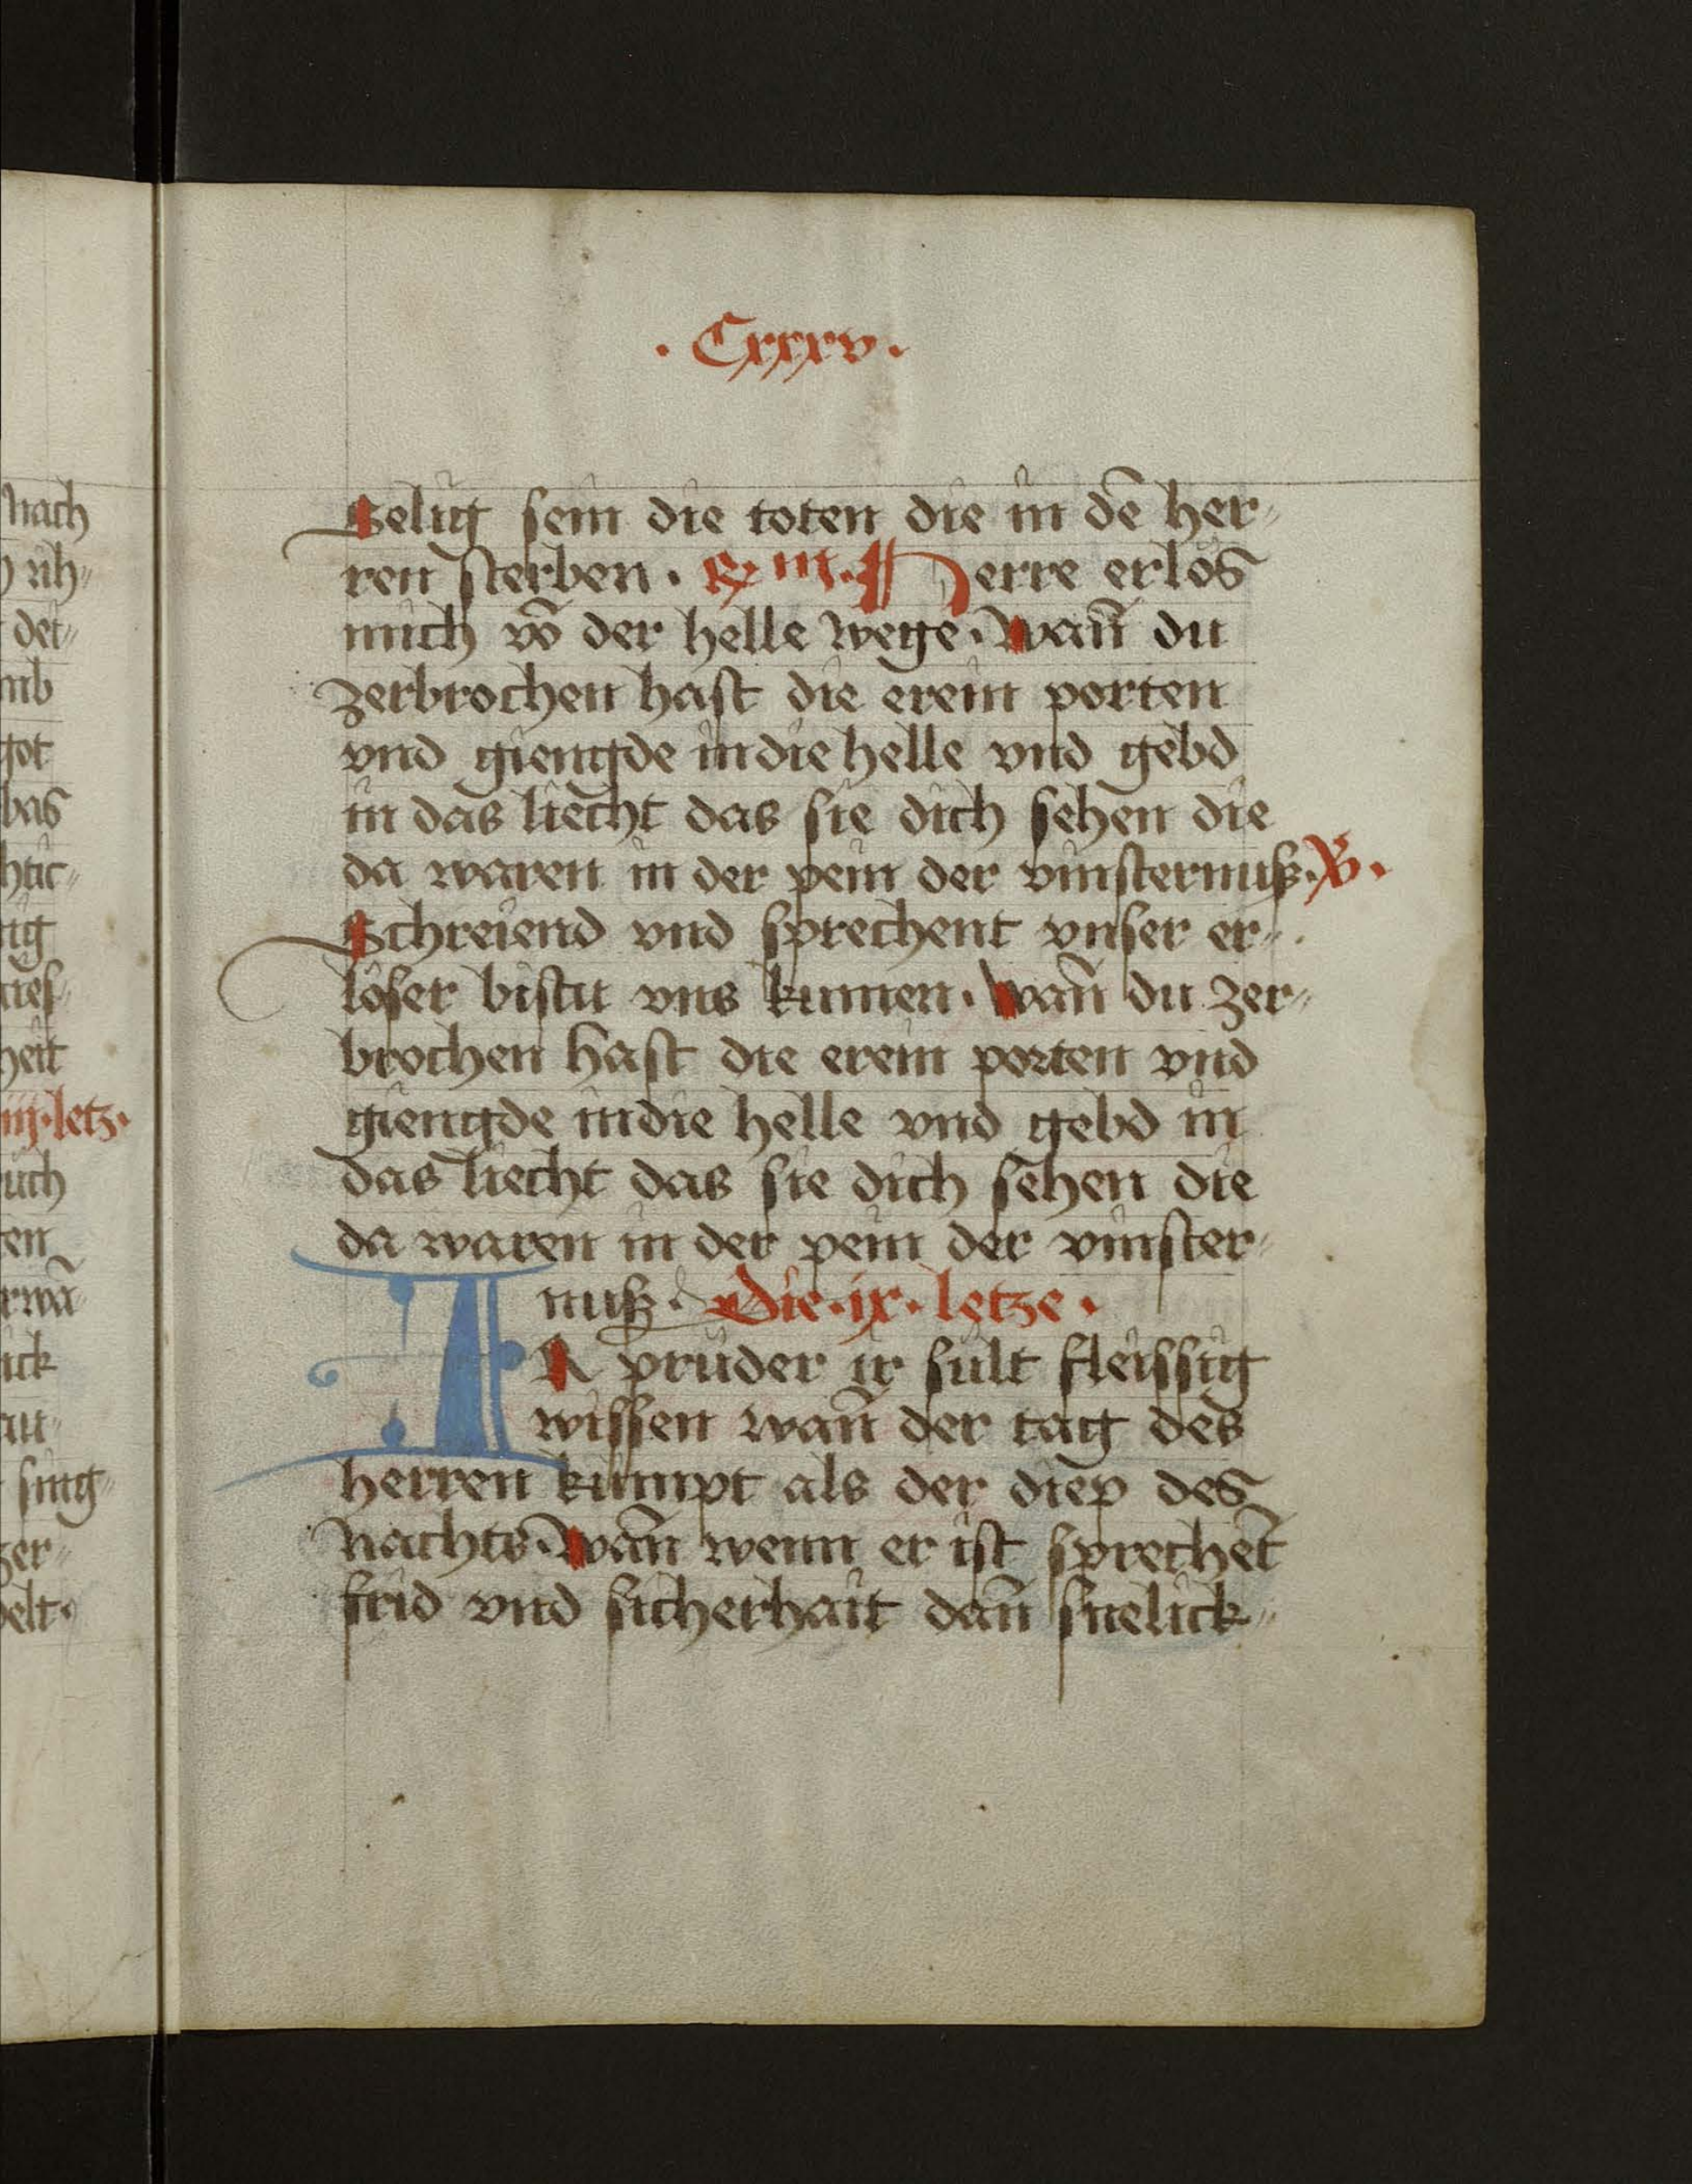 · Cxxxv ·
Selig sein die toten die in dē her-
ren sterben · ℞ iii · Herre erlos
mich vō der helle wege · Wañ du
zerbrochen hast die erein porten
vnd giengde in die helle vnd gebd
in das liecht das sie dich sehen die
da waren in der pein der vinsternuß · ℣ ·
Schreiend vnd sprechent vnser er-
löser bistu vns kumen · Wañ du zer-
brochen hast die erein porten vnd
giengde in die helle vnd gebd in
das liecht das sie dich sehen die
da waren in der pein der vinster-
nuß · Die · ix · letze ·
IR prüder ir sült fleissig
wissen wañ der tag des
herren kümpt als der diep des
nachts · Wañ wenn er ist sprechēt
frid vnd sicherhait dañ snelick-
nach
det-
got
bas
heit
iij · letz ·
sing-